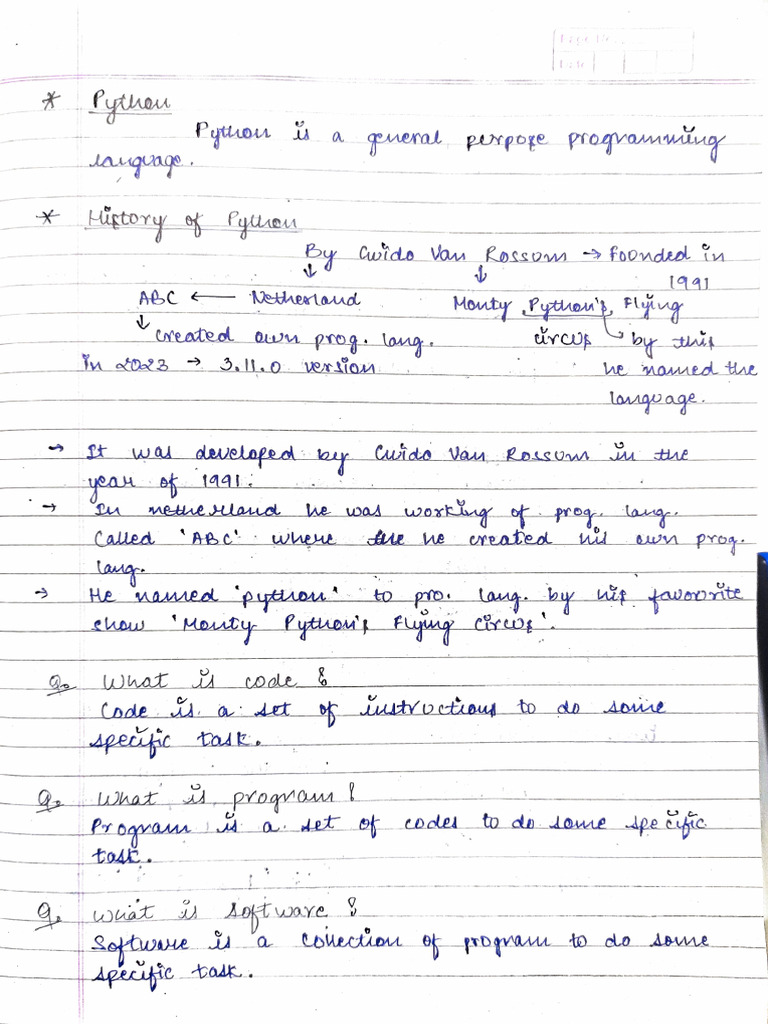 Page No.
Date
* Python
Python is a general perpose programming
language.
* History of Python
By Guido Van Rossum → founded in
1991
↓ ↓
ABC ← Netherland Monty Python's Flying
↓ created own prog. lang. circus by this
in 2023 → 3.11.0 version he named the
language.
→ It was developed by Guido Van Rossum in the
year of 1991.
→ In netherland he was working of prog. lang.
Called 'ABC' where he created his own prog.
lang.
→ He named 'python' to pro. lang. by his favourite
show 'Monty Python's Flying Circus'.
Q. What is code ?
Code is a set of instructions to do some
specific task.
Q. What is program ?
Program is a set of codes to do some specific
task.
Q. What is software ?
Software is a collection of program to do some
specific task.